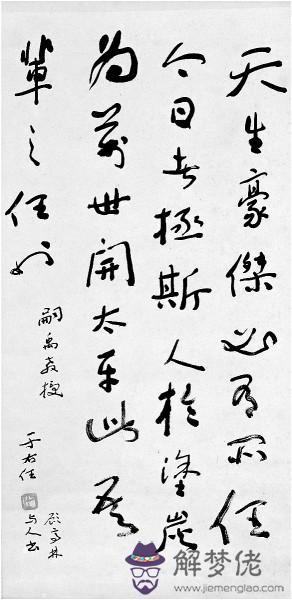 天生豪傑必有所任
今日者拯斯人於塗炭
為萬世開太平此吾
輩之任也
嗣禹教授
于右任
顧亭林
与人书
解梦佬
www.jiemenglao.com